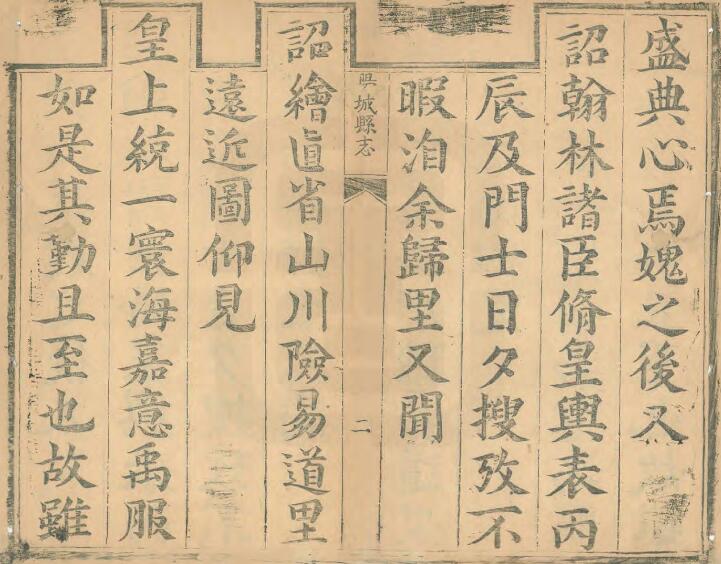 盛典心焉媿之後又
詔翰林諸臣脩皇輿表丙
辰及門士日夕搜攷不
暇洎余歸里又聞
興城縣志
二
詔繪直省山川險易道里
遠近圖仰見
皇上統一寰海嘉意禹服
如是其勤且至也故雖